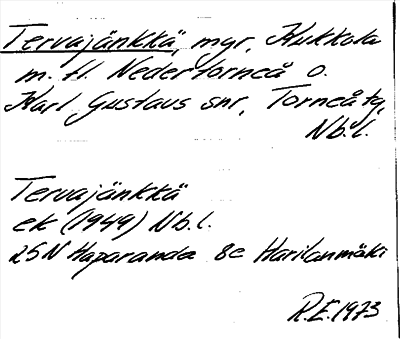 Tervajänkkä, myr, Kukkola
m. fl. Nedertorneå o.
Karl Gustavs snr, Torneå tg,
Nb.l.
Tervajänkkä
ek (1949) Nb.l.
25N Haparanda 8c Harilanmäki
R.E. 1973